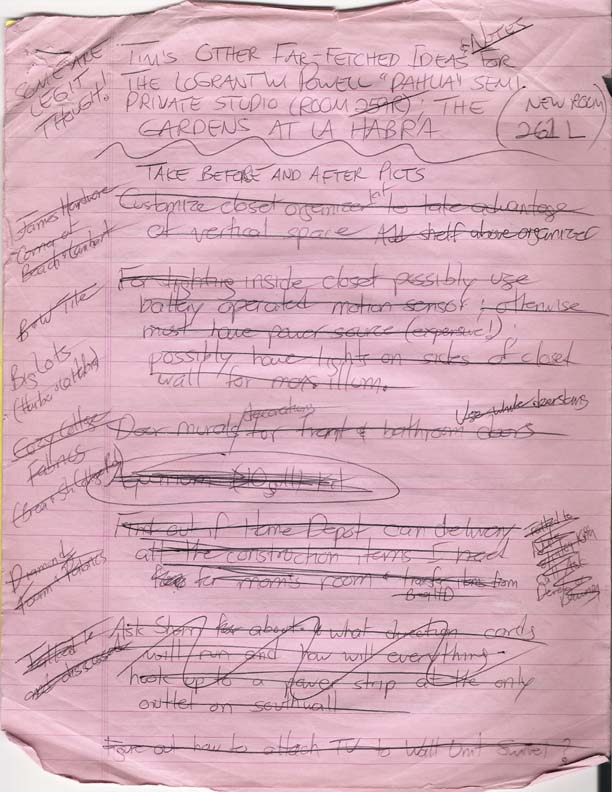 & NOTES
SOME ARE
LEGIT
THOUGH!
TIM'S OTHER FAR-FETCHED IDEAS FOR
THE LOGRANTW POWELL "PAHUA" SEMI
PRIVATE STUDIO (ROOM 259R): THE
GARDENS AT LA HABRA
(NEW ROOM
261 L)
TAKE BEFORE AND AFTER PICTS
Customize closet organizer to take advantage
of vertical space Add shelf above organizer
James Hardware
Corner of
Beach & Lambert
For lighting inside closet possibly use
battery operated motion sensor; otherwise
must have power source (expensive!)
possibly have lights on sides of closet
wall for max illum.
B&W Tile
Big Lots
(Harbor
Door murals/decorations for front & bathroom doors
Use whole doors
Cozy Cottage
Fabrics
Aquarium (10 gall) Kit
Find out if Home Depot can delivery
all the construction items I need
for mom's room & transfer items from
Talked to
Diamond
Foam & Fabrics
Ask Storm about what direction cords
will run and how will everything
hook up to a power strip at the only
outlet on south wall
Talked to
and discussed
Figure out how to attach TV to Wall Unit Swivel?